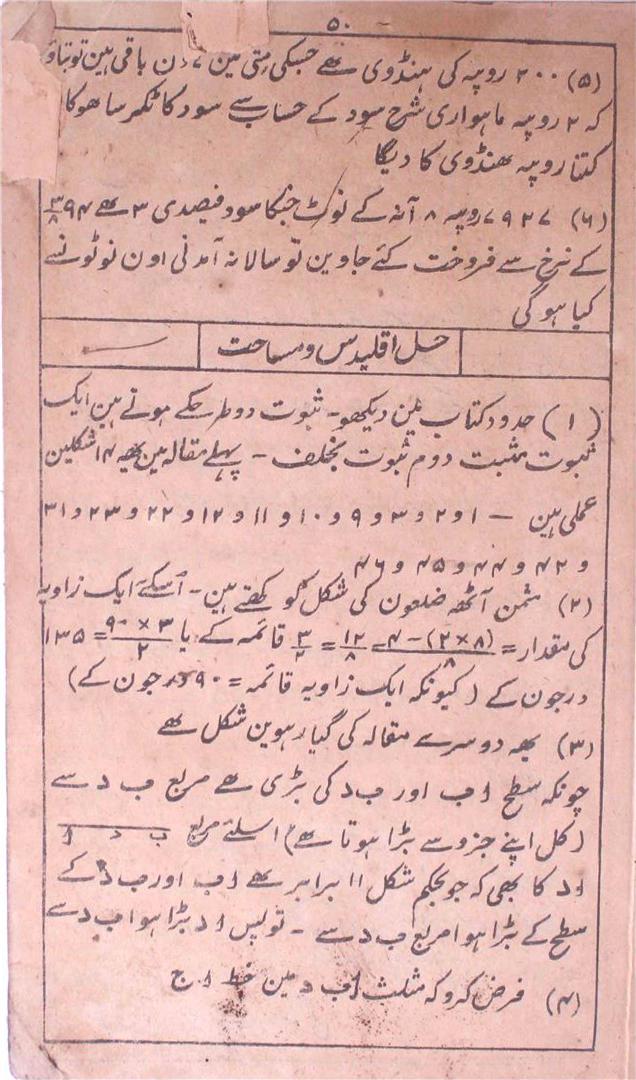 ۵۰
(۵) ۲۰۰ روپیہ کی ہنڈوی ہے جسکی متی مین ۷ دن باقی ہین تو بتاو
کہ ۲ روپیہ ماہواری شرح سود کے حساب سے سود کاٹکر ساہوکار
کتنا روپیہ ہنڈوی کا دیگا
(۶) ۷۹۲۷ روپیہ ۸ آنہ کے نوٹ جنکا سود فیصدی ۳ ہے ۹۴ ۳/۸
کے نرخ سے فروخت کئے جاوین تو سالانہ آمدنی اون نوٹونسے
کیا ہوگی
حل اقلیدس و مساحت
(۱) حدود کتاب مین دیکھو - ثبوت دو طرحکے ہوتے ہین ایک
ثبوت مثبت دوم ثبوت بخلف - پہلے مقالہ مین یہہ ۱۴ شکلین
عملی ہین - ۱ و ۲ و ۳ و ۹ و ۱۰ و ۱۱ و ۱۲ و ۲۲ و ۲۳ و ۳۱
و ۴۲ و ۴۴ و ۴۵ و ۴۶
(۲) مثمن آٹھہ ضلعون کی شکل کو کہتے ہین - اسکے ایک زاویہ
کی مقدار = (۸×۲)-۴/۸ = ۱۲/۸ = ۳/۲ قائمہ کے یا ۳×۹۰/۲ = ۱۳۵
درجون کے (کیونکہ ایک زاویہ قائمہ = ۹۰ درجون کے)
(۳) یہہ دوسرے مقالہ کی گیارہوین شکل ہے
چونکہ سطح ا ب اور ب د کی بڑی ہے مربع ب د سے
(کل اپنے جزو سے بڑا ہوتا ہے) اسلئے مربع ب د ا
ا د کا بھی کہ جو بحکم شکل ۱۱ برابر ہے ا ب اور ب د کے
سطح کے بڑا ہوا مربع ب د سے - تو پس ا د بڑا ہوا ب د سے
(۴) فرض کرو کہ مثلث ا ب د مین خط ا ج